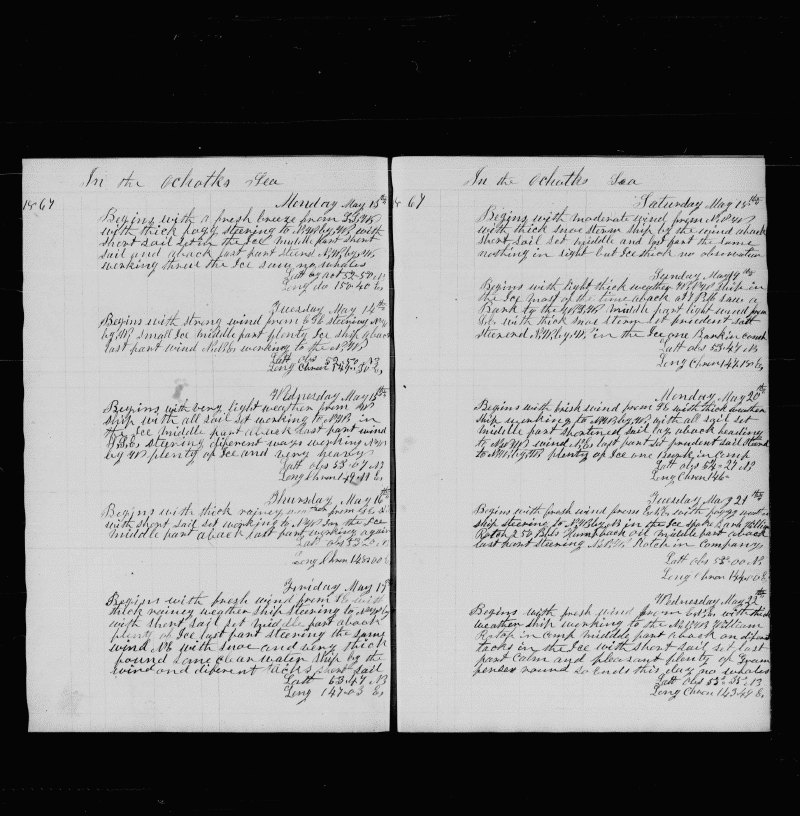 In the Ochotks Sea
1867
Monday May 13th
Begins with a fresh breeze from
with thick foggy steering to NW by W with
short sail set in the Ice middle part short
sail and aback last part steerd NW by W
working threw the Ice saw no whales
Latt by act 52-50 N
Long do 150-40 E
Tuesday May 14th
Begins with strong wind from steering
by W small Ice middle part plenty Ice ship aback
last part wind working to the NW
Latt obs 52-50 N
Long Chron 149-30 E
Wednesday May 15th
Begins with very light weather from W
ship with all sail set working to NW
in the Ice middle part aback last part wind
steering diferent ways working
by W plenty of Ice and very heavy
Latt obs 53-07 N
Long Chron E
Thursday May 16th
Begins with thick rainey from
with short sail set working to in the Ice
middle part aback last part working again
Latt obs
Long Chron 148-00 E
Friday May 17th
Begins with fresh wind from with
thick rainey weather ship steering to
with short sail set middle part aback
plenty of Ice last part steering the same
wind NE with snow and very thick
found some clean water ship by the
wind and diferent tacks short sail
Latt 53-47 N
Long 147-03 E
In the Ochotks Sea
67
Saturday May 18th
Begins with moderate wind from
with thick snow storm ship by the wind aback
short sail set middle and last part the same
nothing in sight but Ice thick no observation
Sunday May 19th
Begins with light thick weather Ship in
the Ice most of the time aback at PM saw a
Bark to the middle part light wind from
with thick snow storm set prudent sail
steerend NW by W in the Ice one Bark in
Latt obs 53-47 N
Long Chron E
Monday May 20th
Begins with brisk wind from with thick weather
ship working to NW by W with all sail set
middle part shortened sail lay aback heading
to wind last part set prudent sail
to plenty of Ice one Bark in Comp
Latt obs 54-27 N
Long Chron 146
Tuesday May 21st
Begins with fresh wind from with foggy
ship steering to in the Ice spoke Bark William
Rotch 250 Bbls Humpback oil middle part aback
last part steering Rotch in Company
Latt obs 55-00 N
Long Chron E
Wednesday May 22nd
Begins with fresh wind from with thick
weather ship working to the William
Rotch in comp middle part aback on difrant
tacks in the Ice with short sail set last
part Calm and pleasant plenty of
round so ends this day no whales
Latt obs 55-35 N
Long Chron 143-48 E